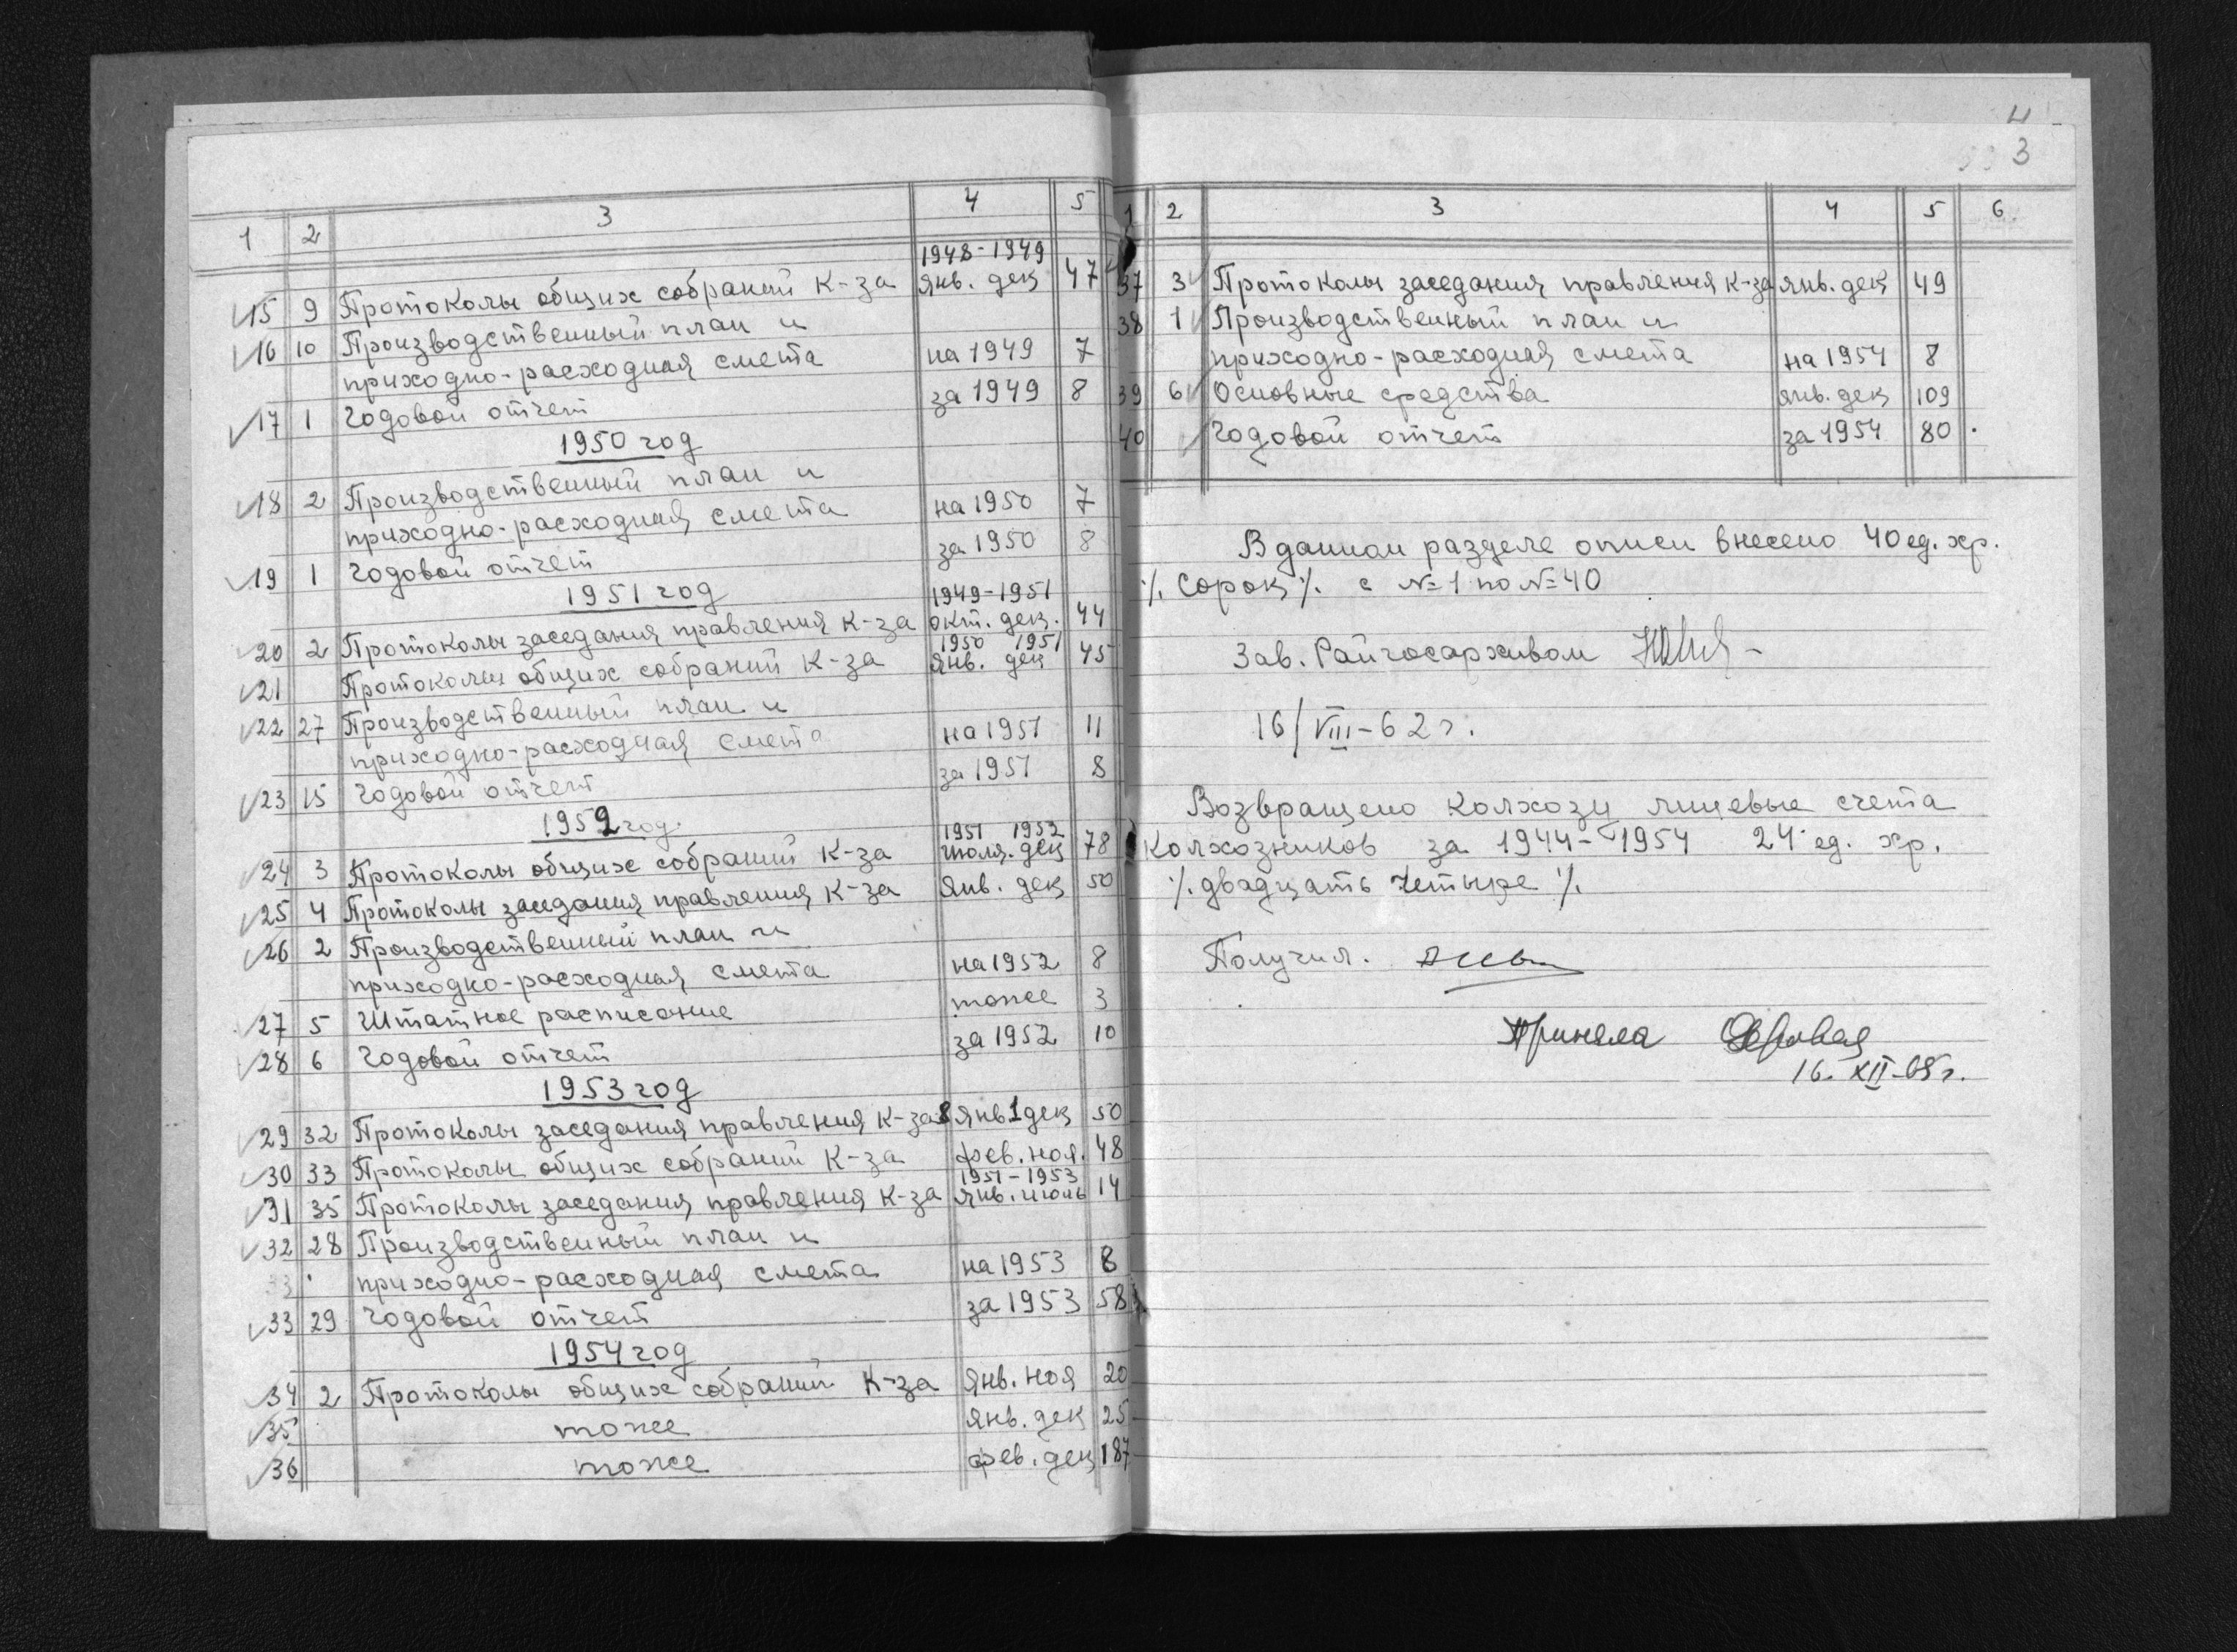 1 2 3 4 5
1948-1949
15 9 Протоколы общих собраний к-за янв. дек 47
16 10 Производственный план и
приходно-расходная смета на 1949 7
17 1 Годовой отчет за 1949 8
1950 год
18 2 Производственный план и
приходно-расходная смета на 1950 7
19 1 Годовой отчет за 1950 8
1951 год
1949-1951
20 2 Протоколы заседания правления к-за окт. дек. 44
1950 1951
21 Протоколы общих собраний к-за янв. дек 45
22 27 Производственный план и
приходно-расходная смета на 1951 11
23 15 Годовой отчет за 1951 8
1952 год
1951 1952
24 3 Протоколы общих собраний к-за июля. дек 78
25 4 Протоколы заседания правления к-за янв. дек 50
26 2 Производственный план и
приходно-расходная смета на 1952 8
27 5 Штатное расписание тоже 3
28 6 Годовой отчет за 1952 10
1953 год
29 32 Протоколы заседания правления к-за янв дек 50
30 33 Протоколы общих собраний к-за фев. ноя. 48
1951-1953
31 35 Протоколы заседания правления к-за янв. июнь 14
32 28 Производственный план и
приходно-расходная смета на 1953 8
33 29 Годовой отчет за 1953 58
1954 год
34 2 Протоколы общих собраний к-за янв. ноя 20
35 тоже янв. дек 25
36 тоже фев. дек 187
4
3
1 2 3 4 5 6
37 3 Протоколы заседания правления к-за янв. дек 49
38 1 Производственный план и
приходно-расходная смета на 1954 8
39 6 Основные средства янв. дек 109
40 Годовой отчет за 1954 80
В данном разделе описи внесено 40 ед. хр.
/. Сорок /. с №1 по №40
Зав. Райгосархивом
16/VIII-62 г.
Возвращено колхозу лицевые счета
колхозников за 1944-1954 24 ед. хр.
/. двадцать четыре /.
Получил.
Приняла
16. XII-68 г.